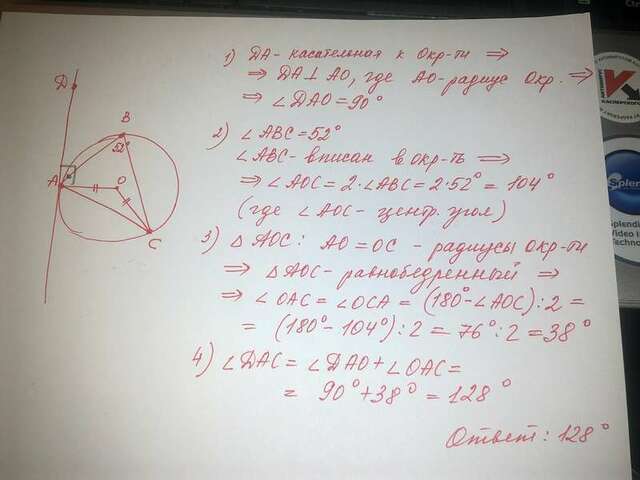 1) DA - касательная к окр-ти ⇒
⇒ DA ⊥ AO, где AO - радиус окр. ⇒
⇒ ∠DAO = 90°
2) ∠ABC = 52°
∠ABC - вписан в окр-ть ⇒
⇒ ∠AOC = 2·∠ABC = 2·52° = 104°
(где ∠AOC - центр. угол)
3) △AOC: AO = OC - радиусы окр-ти
⇒ △AOC - равнобедренный ⇒
⇒ ∠OAC = ∠OCA = (180° - ∠AOC) : 2 =
= (180° - 104°) : 2 = 76° : 2 = 38°
4) ∠DAC = ∠DAO + ∠OAC =
= 90° + 38° = 128°
Ответ: 128°
D
B
52°
A
O
C
КАСПЕРСКОГО
Splendid
Video In
Techno